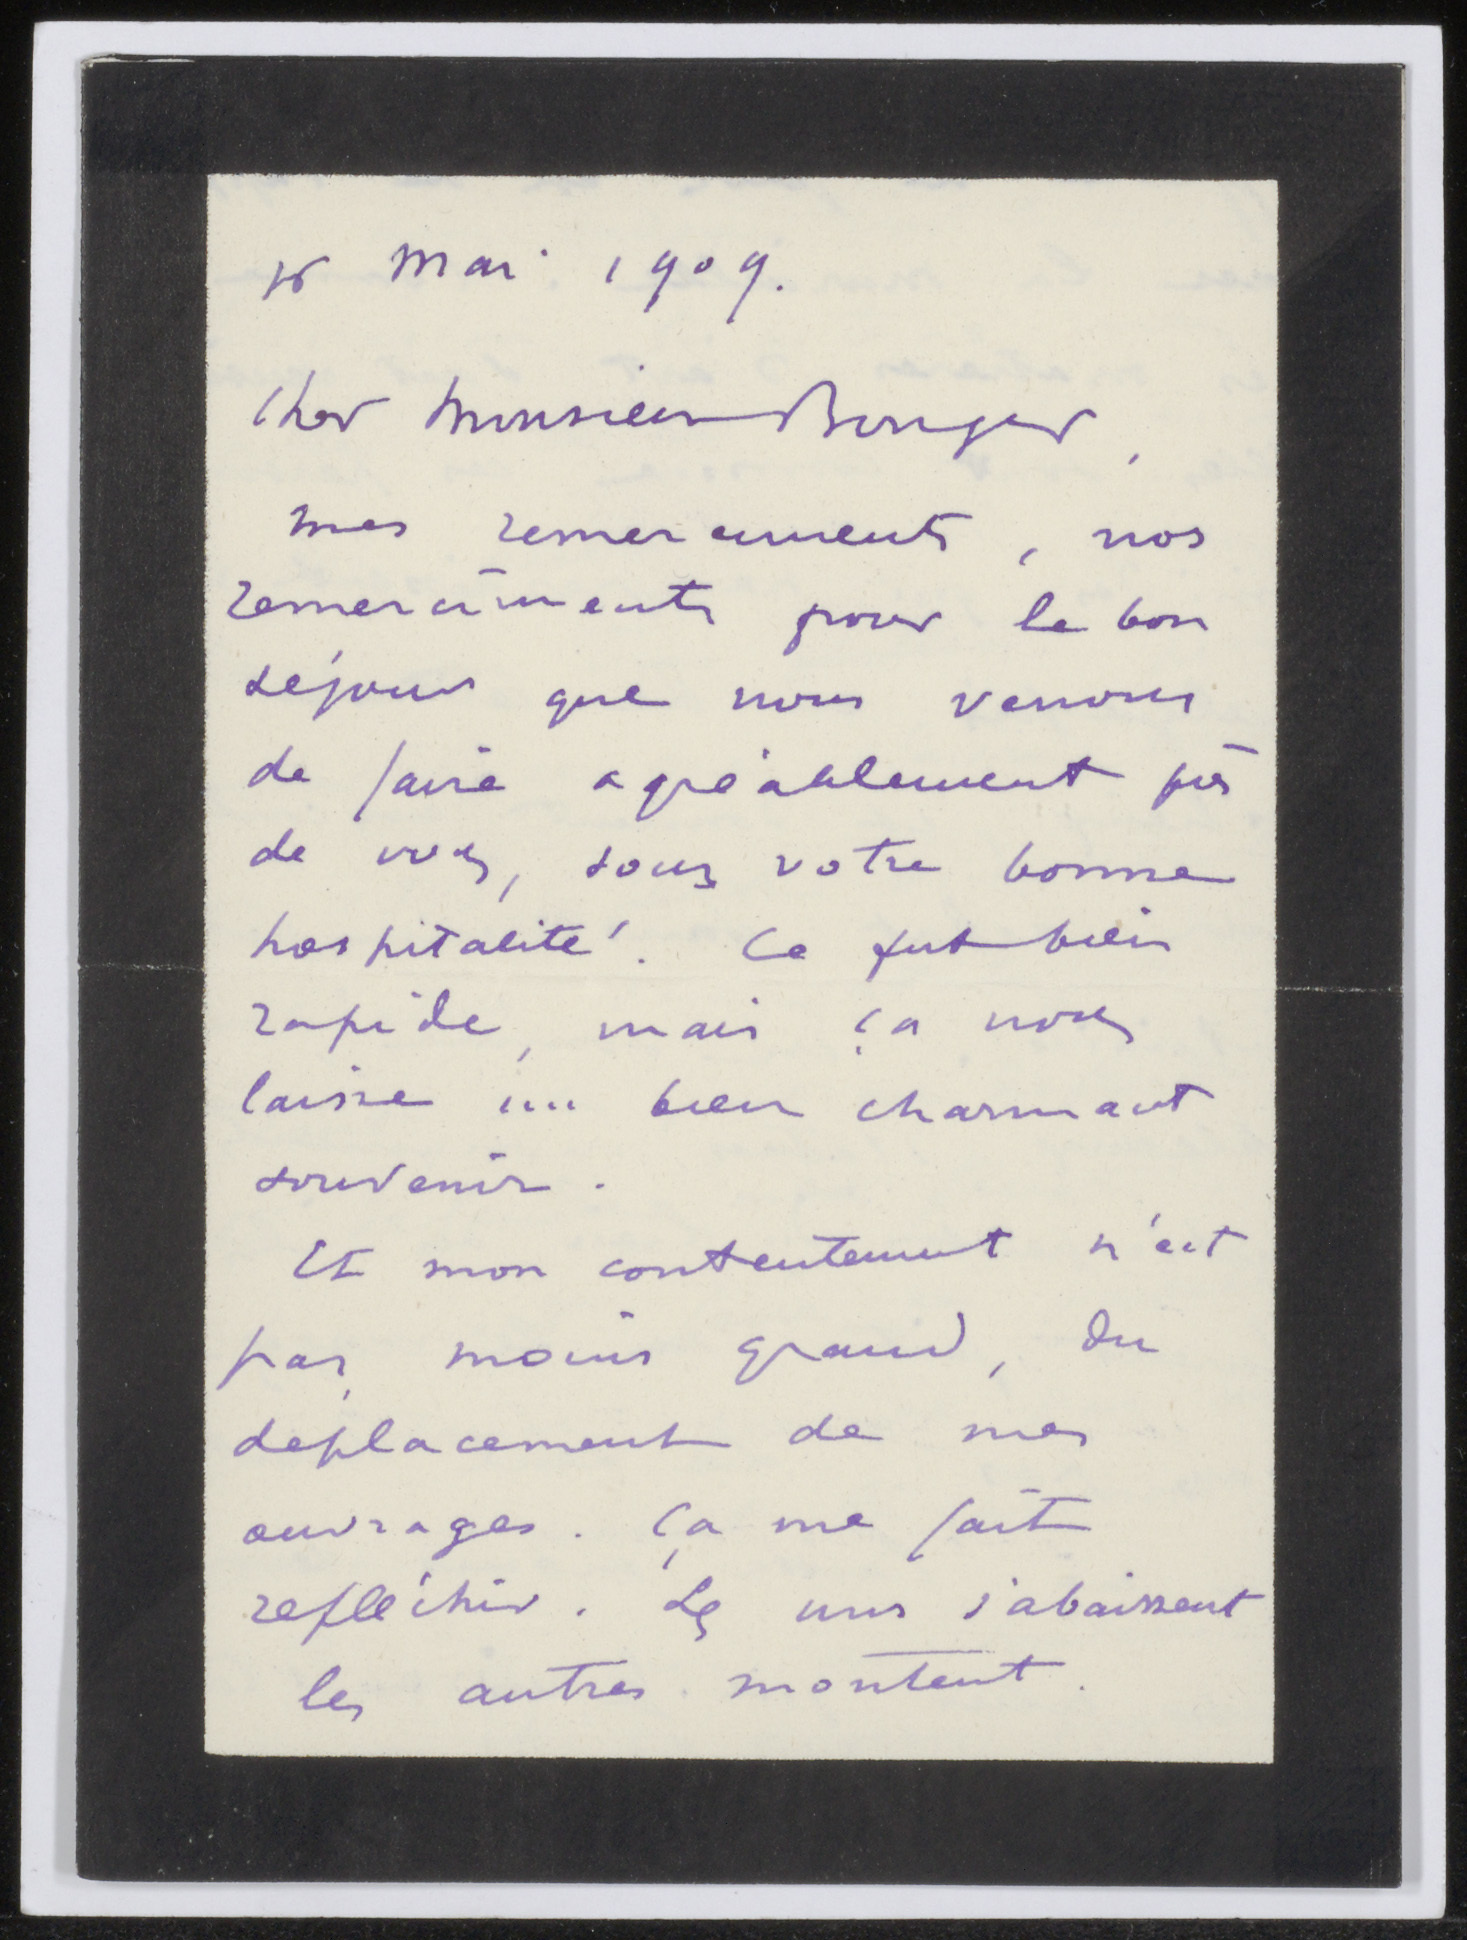 16 Mai 1909.
Cher Monsieur Bonger,
mes remerciements, nos
remercîments pour le bon
séjour que nous venons
de faire agréablement près
de vous, sous votre bonne
hospitalité. Ce fut bien
rapide, mais ça nous
laisse un bien charmant
souvenir.
Et mon contentement n'est
pas moins grand, du
déplacement de mes
ouvrages. Ça me fait
refléchir. Les uns s'abaissent
les autres montent.